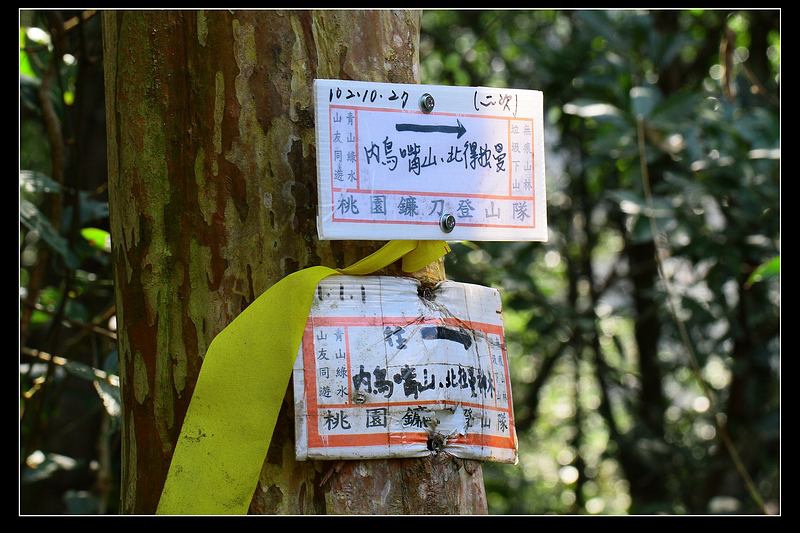 102.10.27 (二次)
青山綠水
山友同遊
→
內鳥嘴山、北得拉曼
無痕山林
垃圾下山
桃園鐮刀登山隊
1.1.1
青山綠水
山友同遊
往 →
內鳥嘴山、北得
桃園鐮 登山隊